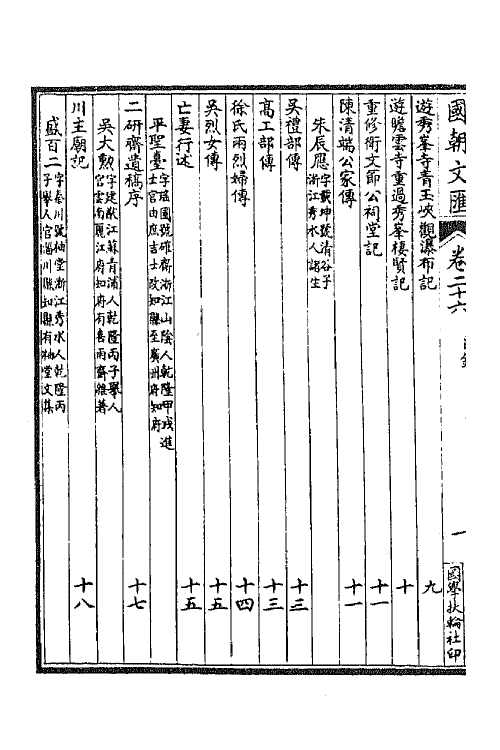 國朝文匯 卷二十六 目錄 一 國學扶輪社印
遊秀峯寺青玉峽觀瀑布記 九
遊瞻雲寺重過秀峯棲賢記 十
重修衛文節公祠堂記 十一
陳清端公家傳 十一
朱辰應 字載坤號清谷子
浙江秀水人諸生
吳禮部傳 十三
高工部傳 十三
徐氏兩烈婦傳 十四
吳烈女傳 十五
亡妻行述 十五
平聖臺 字瑤圃號確齋浙江山陰人乾隆甲戌進
士官由庶吉士改知縣至廣州府知府
二研齋遺稿序 十七
吳大勳 字建猷江蘇青浦人乾隆丙子舉人
官雲南麗江府知府有喜雨齋雜著
川主廟記 十八
盛百二 字秦川號柚堂浙江秀水人乾隆丙
子舉人官淄川縣知縣有柚堂文集